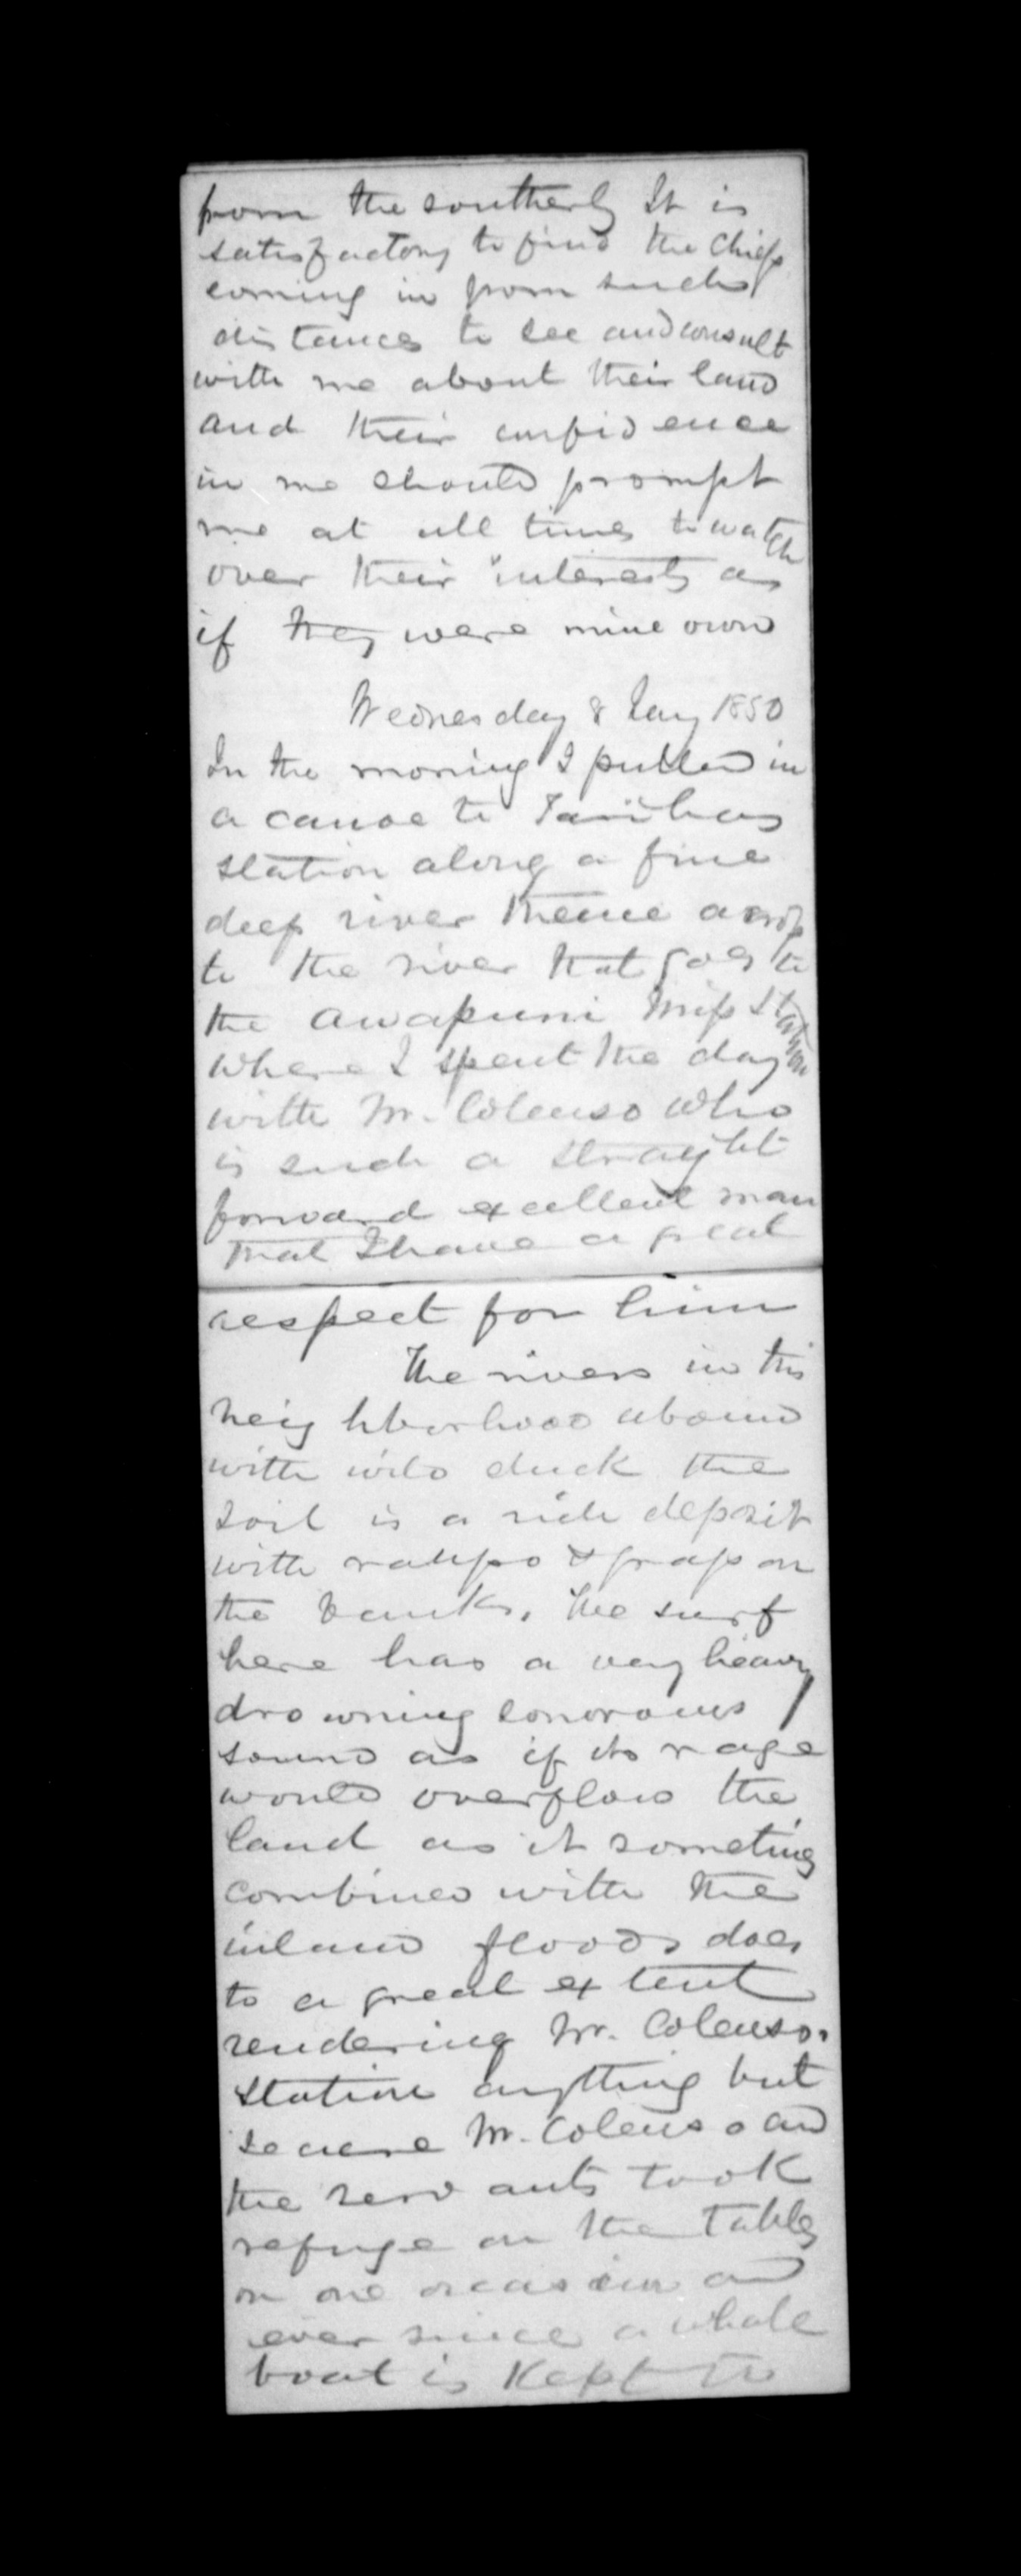 from the southerly It is
satisfactory to find the Chiefs
coming in from such
distances to see and consult
with me about their land
and their confidence
in me should prompt
me at all times to watch
over their interests as
if they were mine own
Wednesday 8 Jany 1850
In the morning I pulled in
a canoe to
station along a fine
deep river thence across
to the river that goes to
the Awapuni Miss Station
where I spent the day
with Mr. Colenso who
is such a straight
forward excellent man
that I have a great
respect for him
The rivers in this
neighborhood abound
with wild duck the
soil is a rich deposit
with raupo & grass on
the banks. The surf
here has a very heavy
drowning sonorous
sound as if its rage
would overflow the
land as it sometimes
combined with the
inland floods does
to a great extent
rendering Mr. Colensos
station anything but
secure Mr. Colenso and
the servants took
refuge on the tables
on one occasion and
ever since a whale
boat is kept to